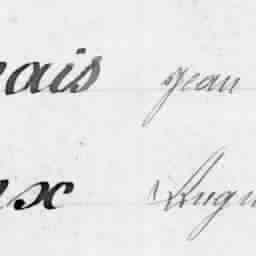 ais Jean
ux Augu